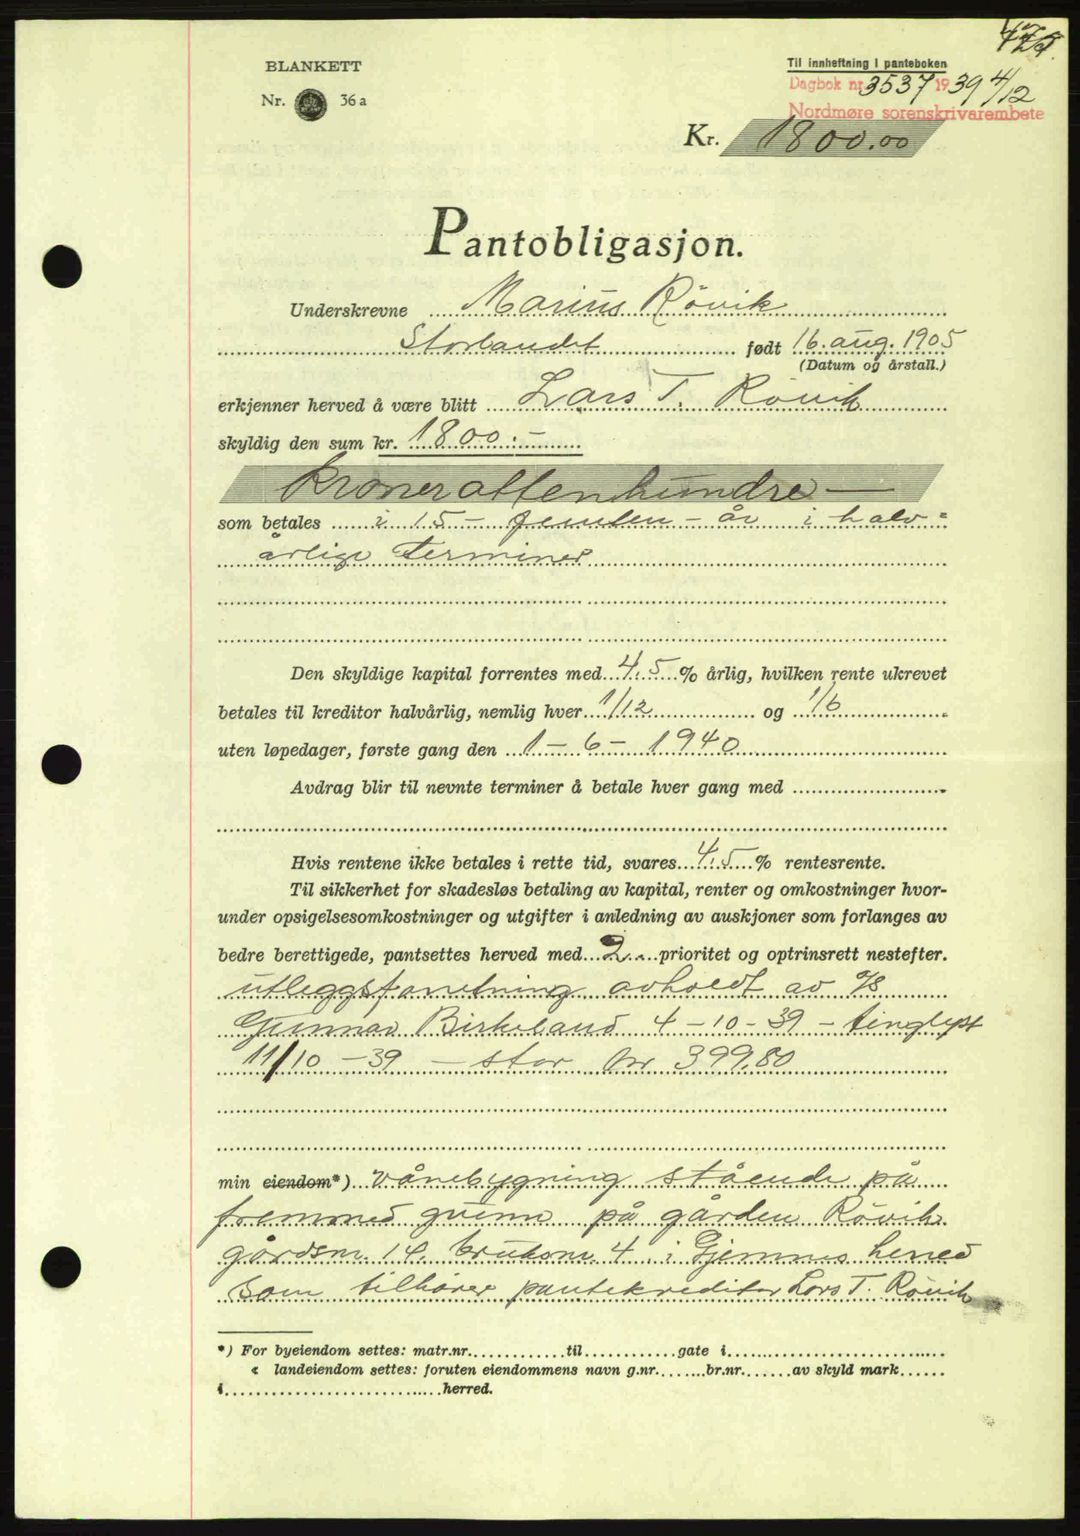 BLANKETT
Nr. 36 a
Til innheftning i panteboken
Dagbok nr. 3537 1939 4/12
Nordmøre sorenskrivarembete
Kr. 1800.00
Pantobligasjon.
Underskrevne Marius Røvik
Storlandet født 16. aug. 1905
(Datum og årstall.)
erkjenner herved å være blitt Lars T. Røvik
skyldig den sum kr. 1800:-
kroner attenhundre —
som betales i 15 - femten - år i halv=
årlige terminer
Den skyldige kapital forrentes med 4.5 % årlig, hvilken rente ukrevet
betales til kreditor halvårlig, nemlig hver 1/12 og 1/6
uten løpedager, første gang den 1-6-1940
Avdrag blir til nevnte terminer å betale hver gang med
Hvis rentene ikke betales i rette tid, svares 4.5 % rentesrente.
Til sikkerhet for skadesløs betaling av kapital, renter og omkostninger hvor-
under opsigelsesomkostninger og utgifter i anledning av auskjoner som forlanges av
bedre berettigede, pantsettes herved med 2 prioritet og optrinsrett nestefter.
utleggsforretning avholdt av
Gunnar Birkeland 4-10-39 - tinglyst
11/10-39 - stor kr 399.80
min eiendom*) vånebygning stående på
fremmed grunn på gården Røvik
gårdsnr. 14. bruksnr. 4 i Gjemnes herred
som tilhører pantekreditor Lars T. Røvik
*) For byeiendom settes: matr.nr. til gate i
« landeiendom settes: foruten eiendommens navn g.nr. br.nr. av skyld mark
i herred.